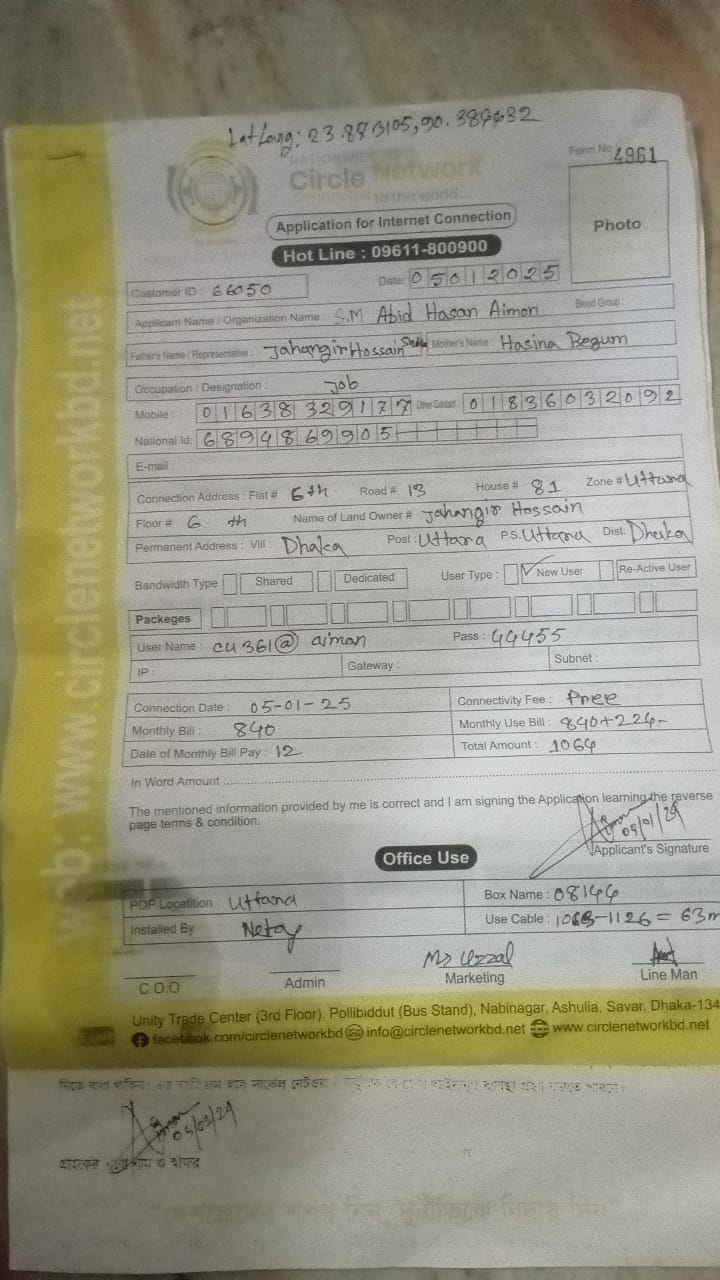 Lat Long: 23.873105,90.384632
Form No 4961
NATIONWIDE ISP
Circle Network
to the world...
Application for Internet Connection
Photo
Hot Line : 09611-800900
Customer ID : 66050 Date: 05012025
Applicant Name / Organization Name : S.M Abid Hasan Aimon Blood Group :
Father's Name / Representative : Jahangir Hossain Mother's Name : Hasina Begum
Occupation / Designation : Job
Mobile : 01638329177 Other Contact 01836032092
National Id: 6894869905
E-mail :
Connection Address : Flat # 6th Road # 13 House # 81 Zone # Uttara
Floor # 6 th Name of Land Owner # Jahangir Hossain
Permanent Address : Vill : Dhaka Post : Uttara P.S. Uttara Dist. Dhaka
Bandwidth Type Shared Dedicated User Type : New User Re-Active User
Packeges
User Name : cu361@aiman Pass : 44455
IP : Gateway : Subnet :
Connection Date : 05-01-25 Connectivity Fee : Free
Monthly Bill : 840 Monthly Use Bill : 840+224-
Date of Monthly Bill Pay : 12 Total Amount : 1064
In Word Amount
The mentioned information provided by me is correct and I am signing the Application learning the reverse
page terms & condition.
Applicant's Signature
Office Use
POP Locatition : Uttara Box Name : 08144
Installed By Use Cable : 1063-1126 = 63m
C.O.O Admin Marketing Line Man
Unity Trade Center (3rd Floor), Pollibiddut (Bus Stand), Nabinagar, Ashulia, Savar, Dhaka-134
facebook.com/circlenetworkbd info@circlenetworkbd.net www.circlenetworkbd.net
www.circlenetworkbd.net